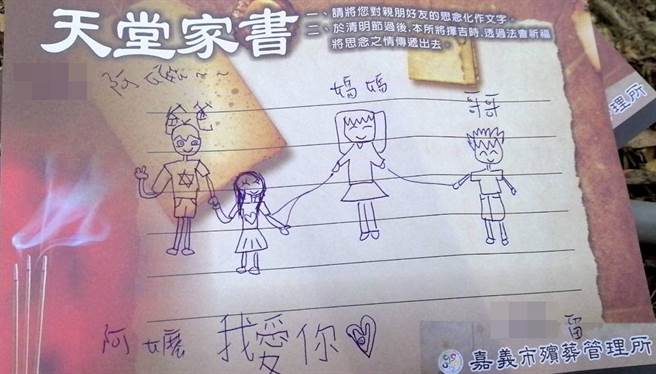 天堂家書
一、請將您對親朋好友的思念化作文字。
二、於清明節過後,本所將擇吉時,透過法會祈福
將思念之情傳遞出去。
管理所
阿嬤~~
媽媽
哥哥
爸爸
阿嬤 我愛你
留
嘉義市殯葬管理所